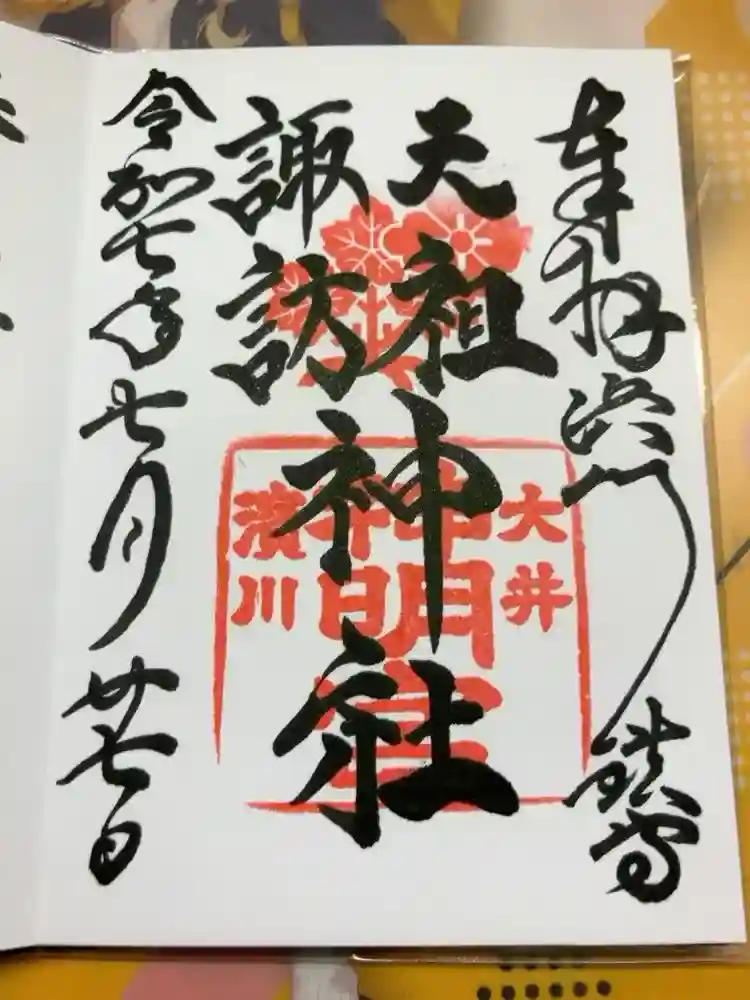 奉拝 浜川鎮守
天祖
諏訪
神社
令和七年七月廿七日
大井
濱川
神明宮